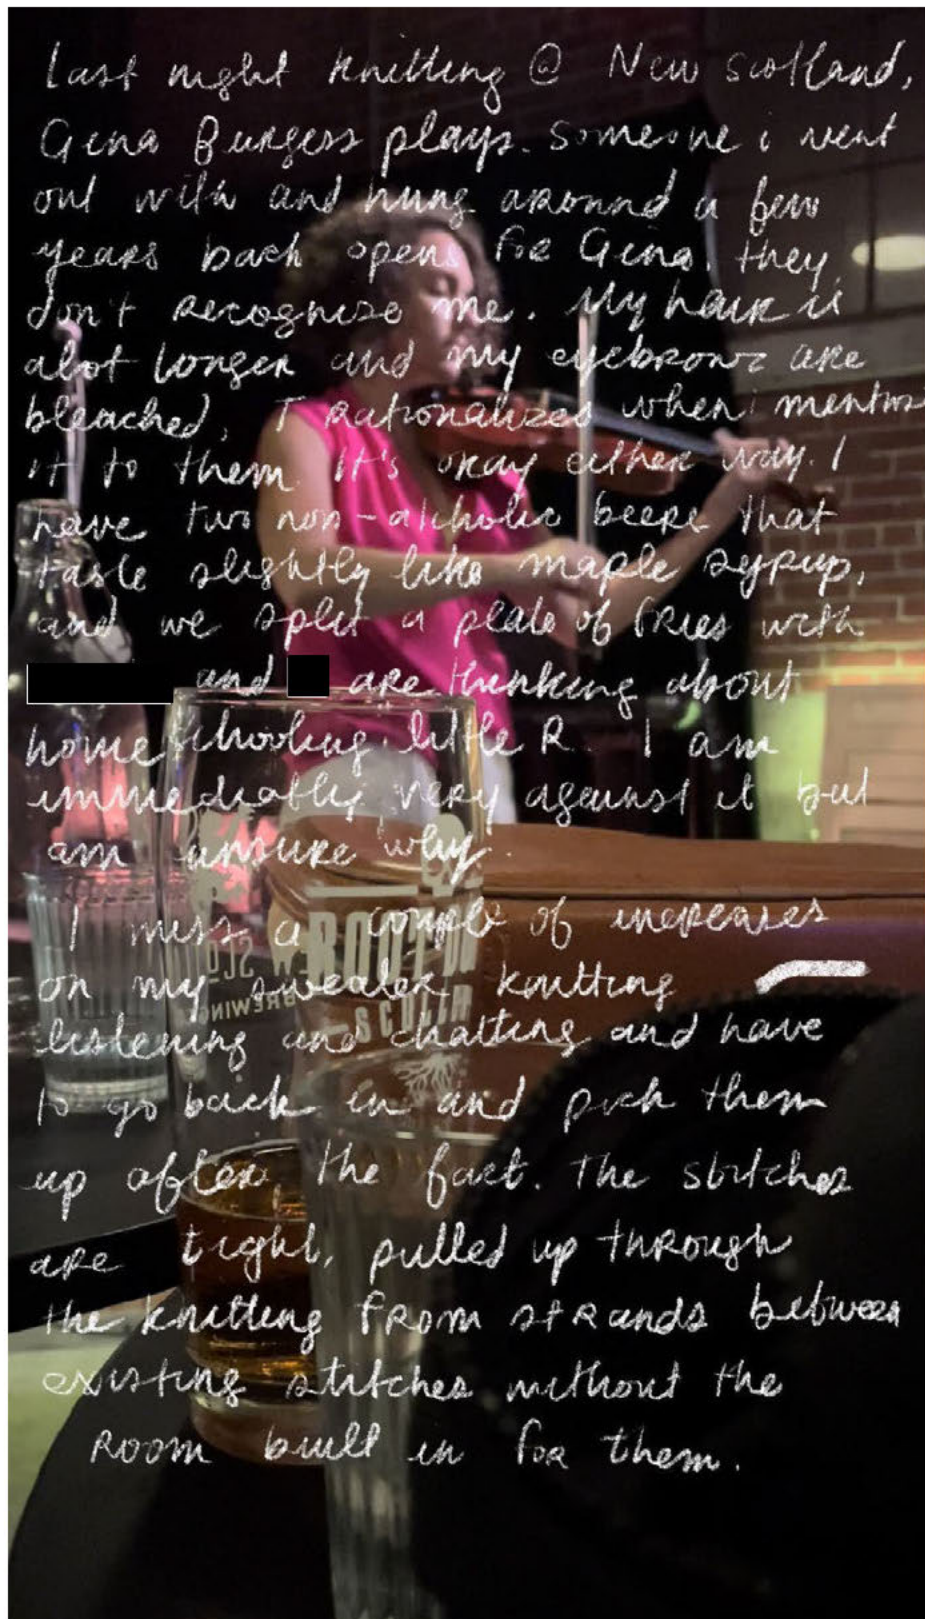 Last night knitting @ New Scotland,
Gina Burgess plays. Someone i went
out with and hung around a few
years back opens for Gina. they
don't recognize me. My hair is
alot longer and my eyebrows are
bleached, T rationalizes when i mention
it to them. It's okay either way. I
have two non-alcholic beers that
taste slightly like maple syrup,
and we split a plate of fries with
and are thinking about
homeschooling little R. I am
immediatly very against it but
am unsure why.
I miss a couple of increases
on my sweater knitting
listening and chatting and have
to go back in and pick them
up after the fact. The stitches
are tight, pulled up through
the knitting from strands between
existing stitches without the
room built in for them.
ROOT
SCOTCH
BREWING